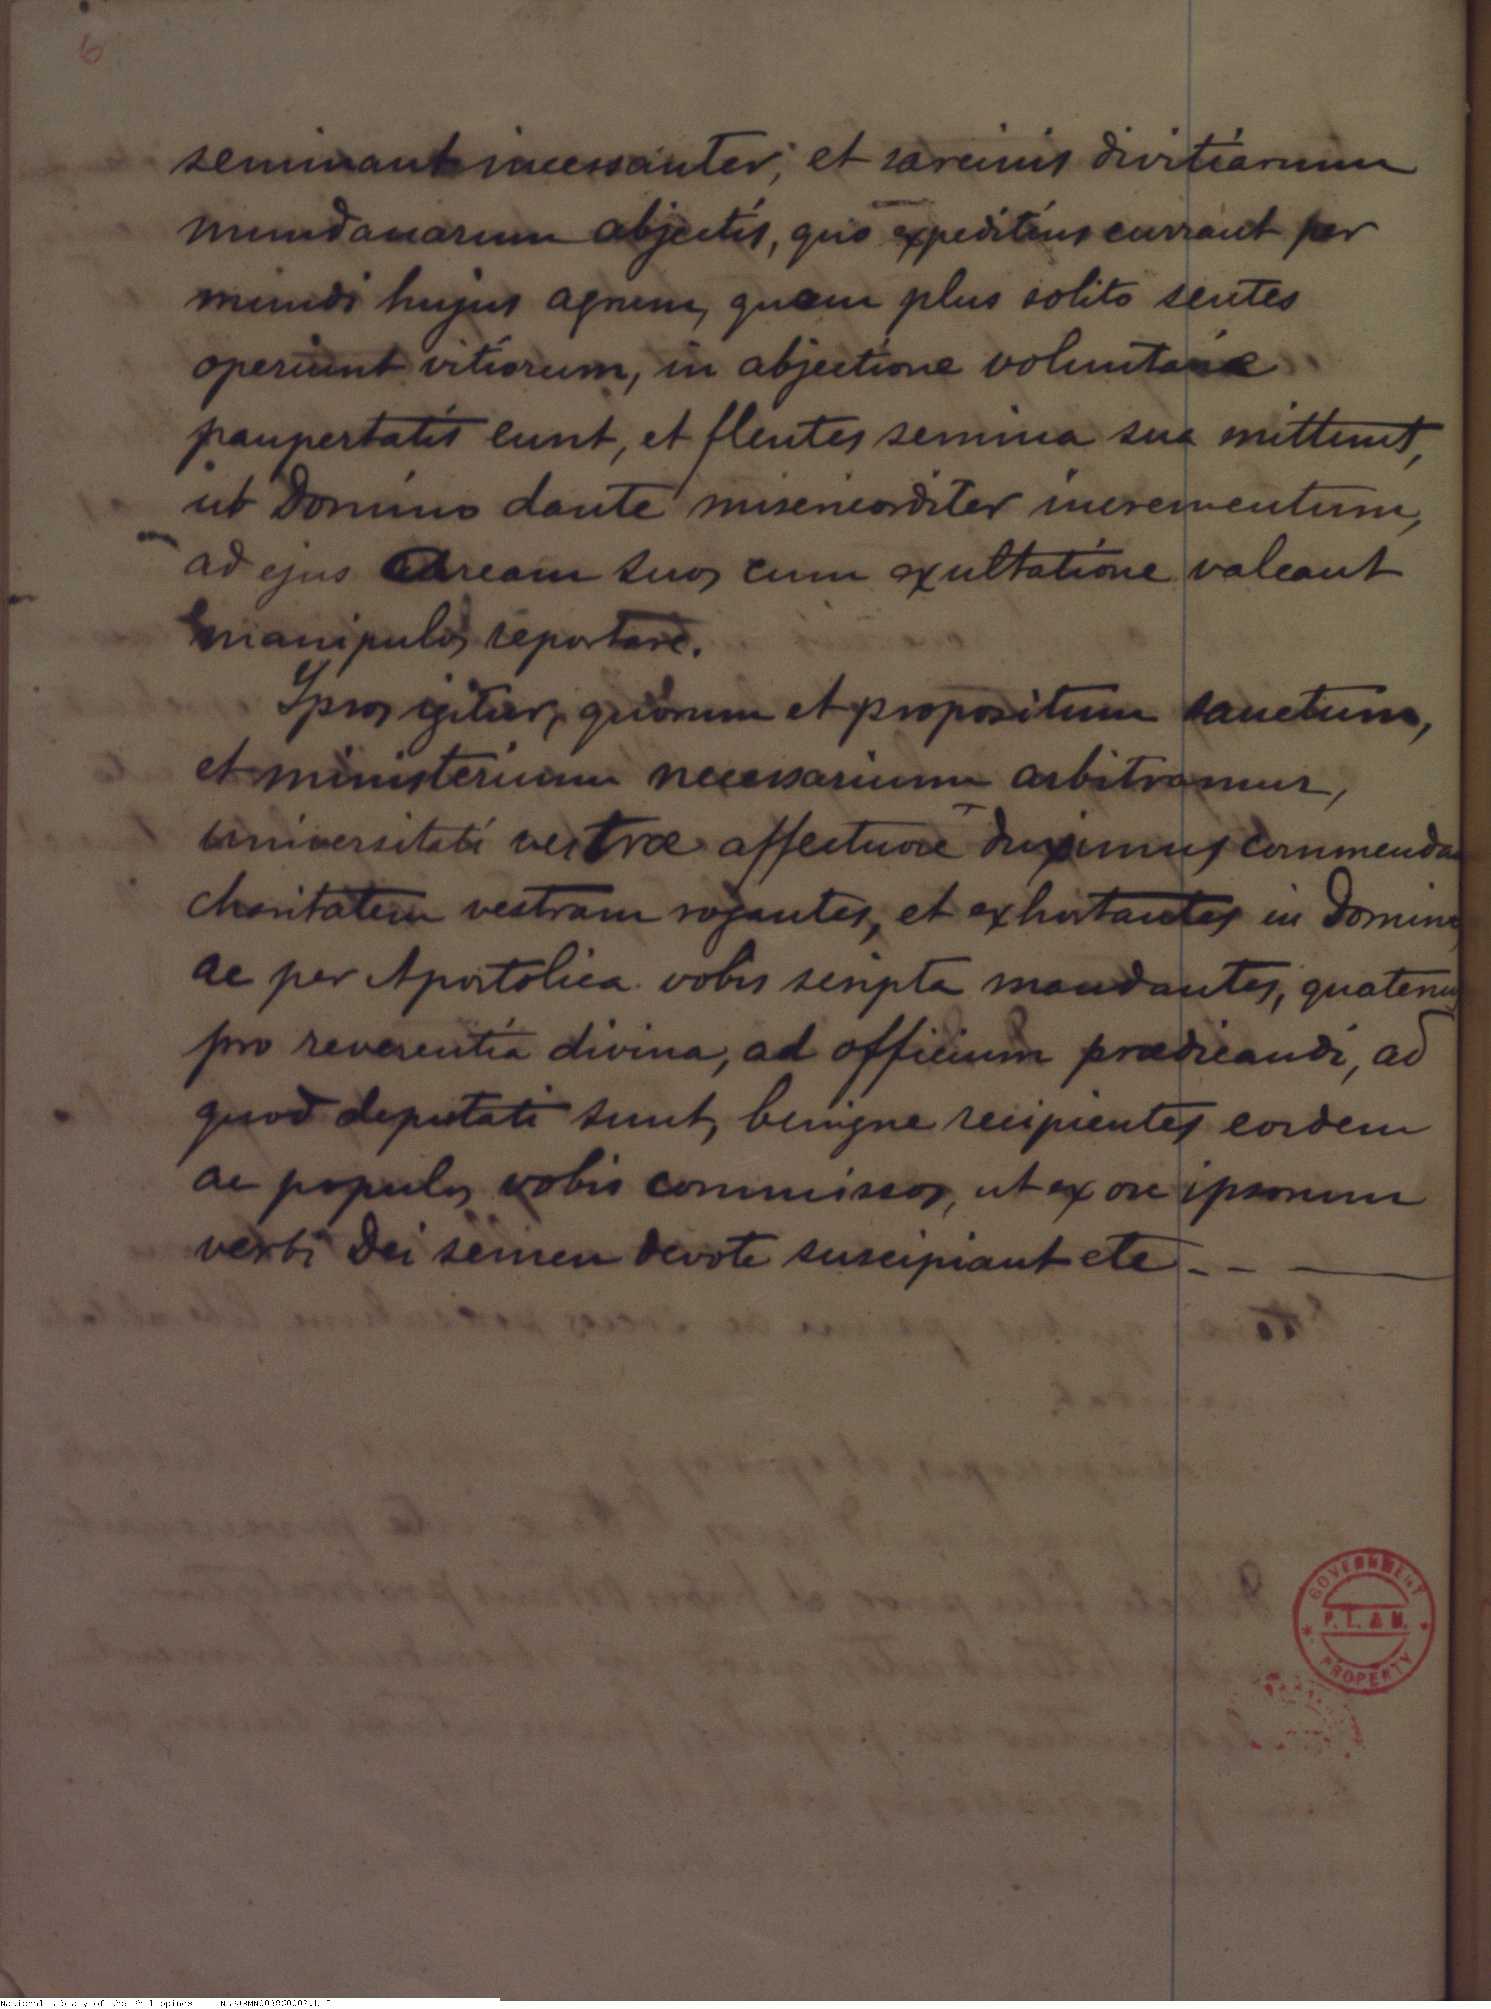 6
seminant incessanter, et sarcinis divitiarum
mundanarum abjectis, quo expeditius currant per
mundi hujus agrum, quem plus solito sentes
operiunt vitiorum, in abjectione voluntariae
paupertatis eunt, et flentes semina sua mittunt,
ut Domino dante misericorditer incrementum,
ad ejus aream suos cum exultatione valeant
manipulos reportare.
Ipsos igitur, quorum et propositum sanctum,
et ministerium necessarium arbitramur,
universitati vestræ affectuose duximus commenda
charitatem vestram rogantes, et exhortantes in Domino
ac per Apostolica vobis scripta mandantes, quatenus
pro reverentia divina, ad officium prædicandi, ad
quod deputati sunt, benigne recipientes eosdem
ac populos vobis commissos, ut ex ore ipsorum
verbi Dei semen devote suscipiant etc - - —
GOVERNMENT
P. L. & M.
PROPERTY
National Library of the Philippines